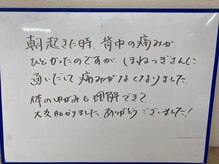 朝起きた時、背中の痛みが
ひどかったのですが、ほねつぎさんに
通いだして痛みがなくなりました。
体のゆがみも理解できて
大変助かりました ありがとうございました!